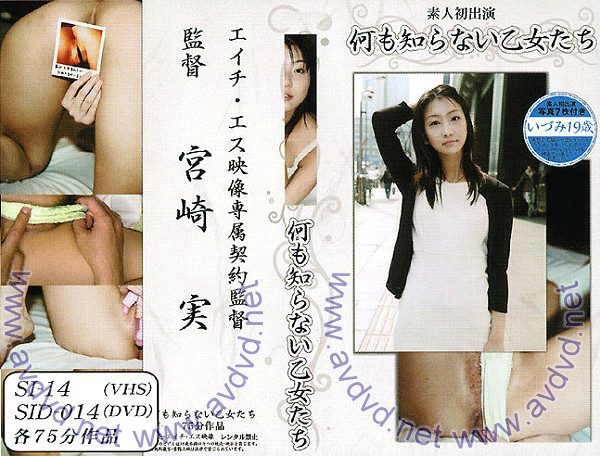 監督 宮崎 実
エイチ・エス映像専属契約監督
SI-14 (VHS)
SID-014 (DVD)
各75分作品
何も知らない乙女たち
75分作品
エイチ・エス映像 レンタル禁止
何も知らない乙女たち
素人初出演
何も知らない乙女たち
素人初出演
写真7枚付き
いづみ19歳
www.avdvd.net
www.avdvd.net
www.avdvd.net
www.avdvd.net